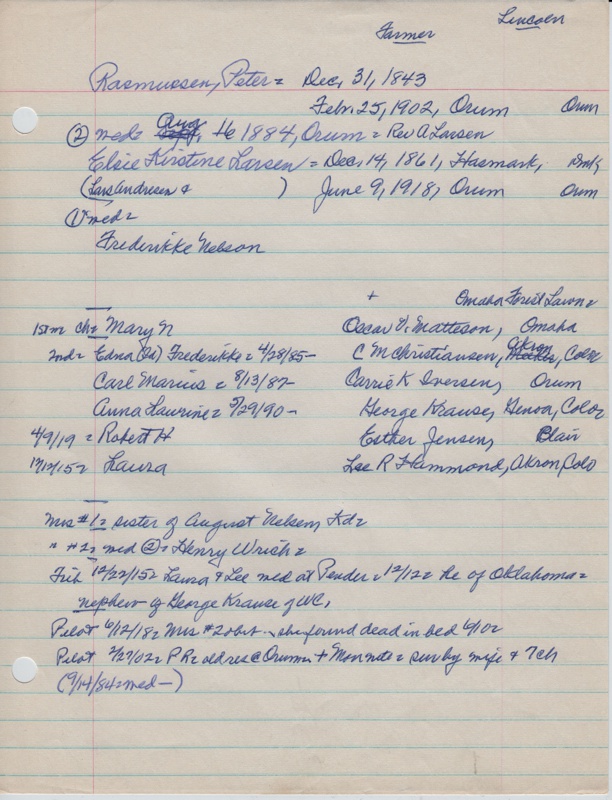 Farmer Lincoln
Rasmussen, Peter = Dec, 31, 1843
Febr. 25, 1902, Orum Orum
Aug
(2) med = 1884, Orum = Rev A Larsen
Elsie Kirstine Larsen = Dec, 14, 1861, Hasmark, Dmk
(Lars Andreen & ) June 9, 1918, Orum Orum
(1) med =
Frederikke Nelson
+ Omaha Forest Lawn =
1st m ch = Mary N Oscar V. Matteson, Omaha
Akron
2nd = Edna (Ed) Frederikke = 4/28/85 - C M Christiansen, Colo
Carl Marius = 8/13/87 - Carrie K Iversen, Orum
Anna Laurine = 5/29/90 - George Krause, Genoa, Colo,
4/9/19 = Robert H Esther Jensen, Blair
12/12/15 = Laura Lee R Hammond, Akron Colo
Mrs #1 = sister of August Nelsen, Kd =
" #2 = med (2) = Henry Wrich =
Trib 12/22/15 = Laura & Lee med at Pender = 12/12 = he of Oklahoma =
nephew of George Krause of WC,
Pilot 6/12/18 = Mrs #2 obit - she found dead in bed 6/10 =
Pilot 2/27/02 = P R = oldres @ Orum = + Mon note = sur by wife & 7 ch
(9/14/84 = med -)